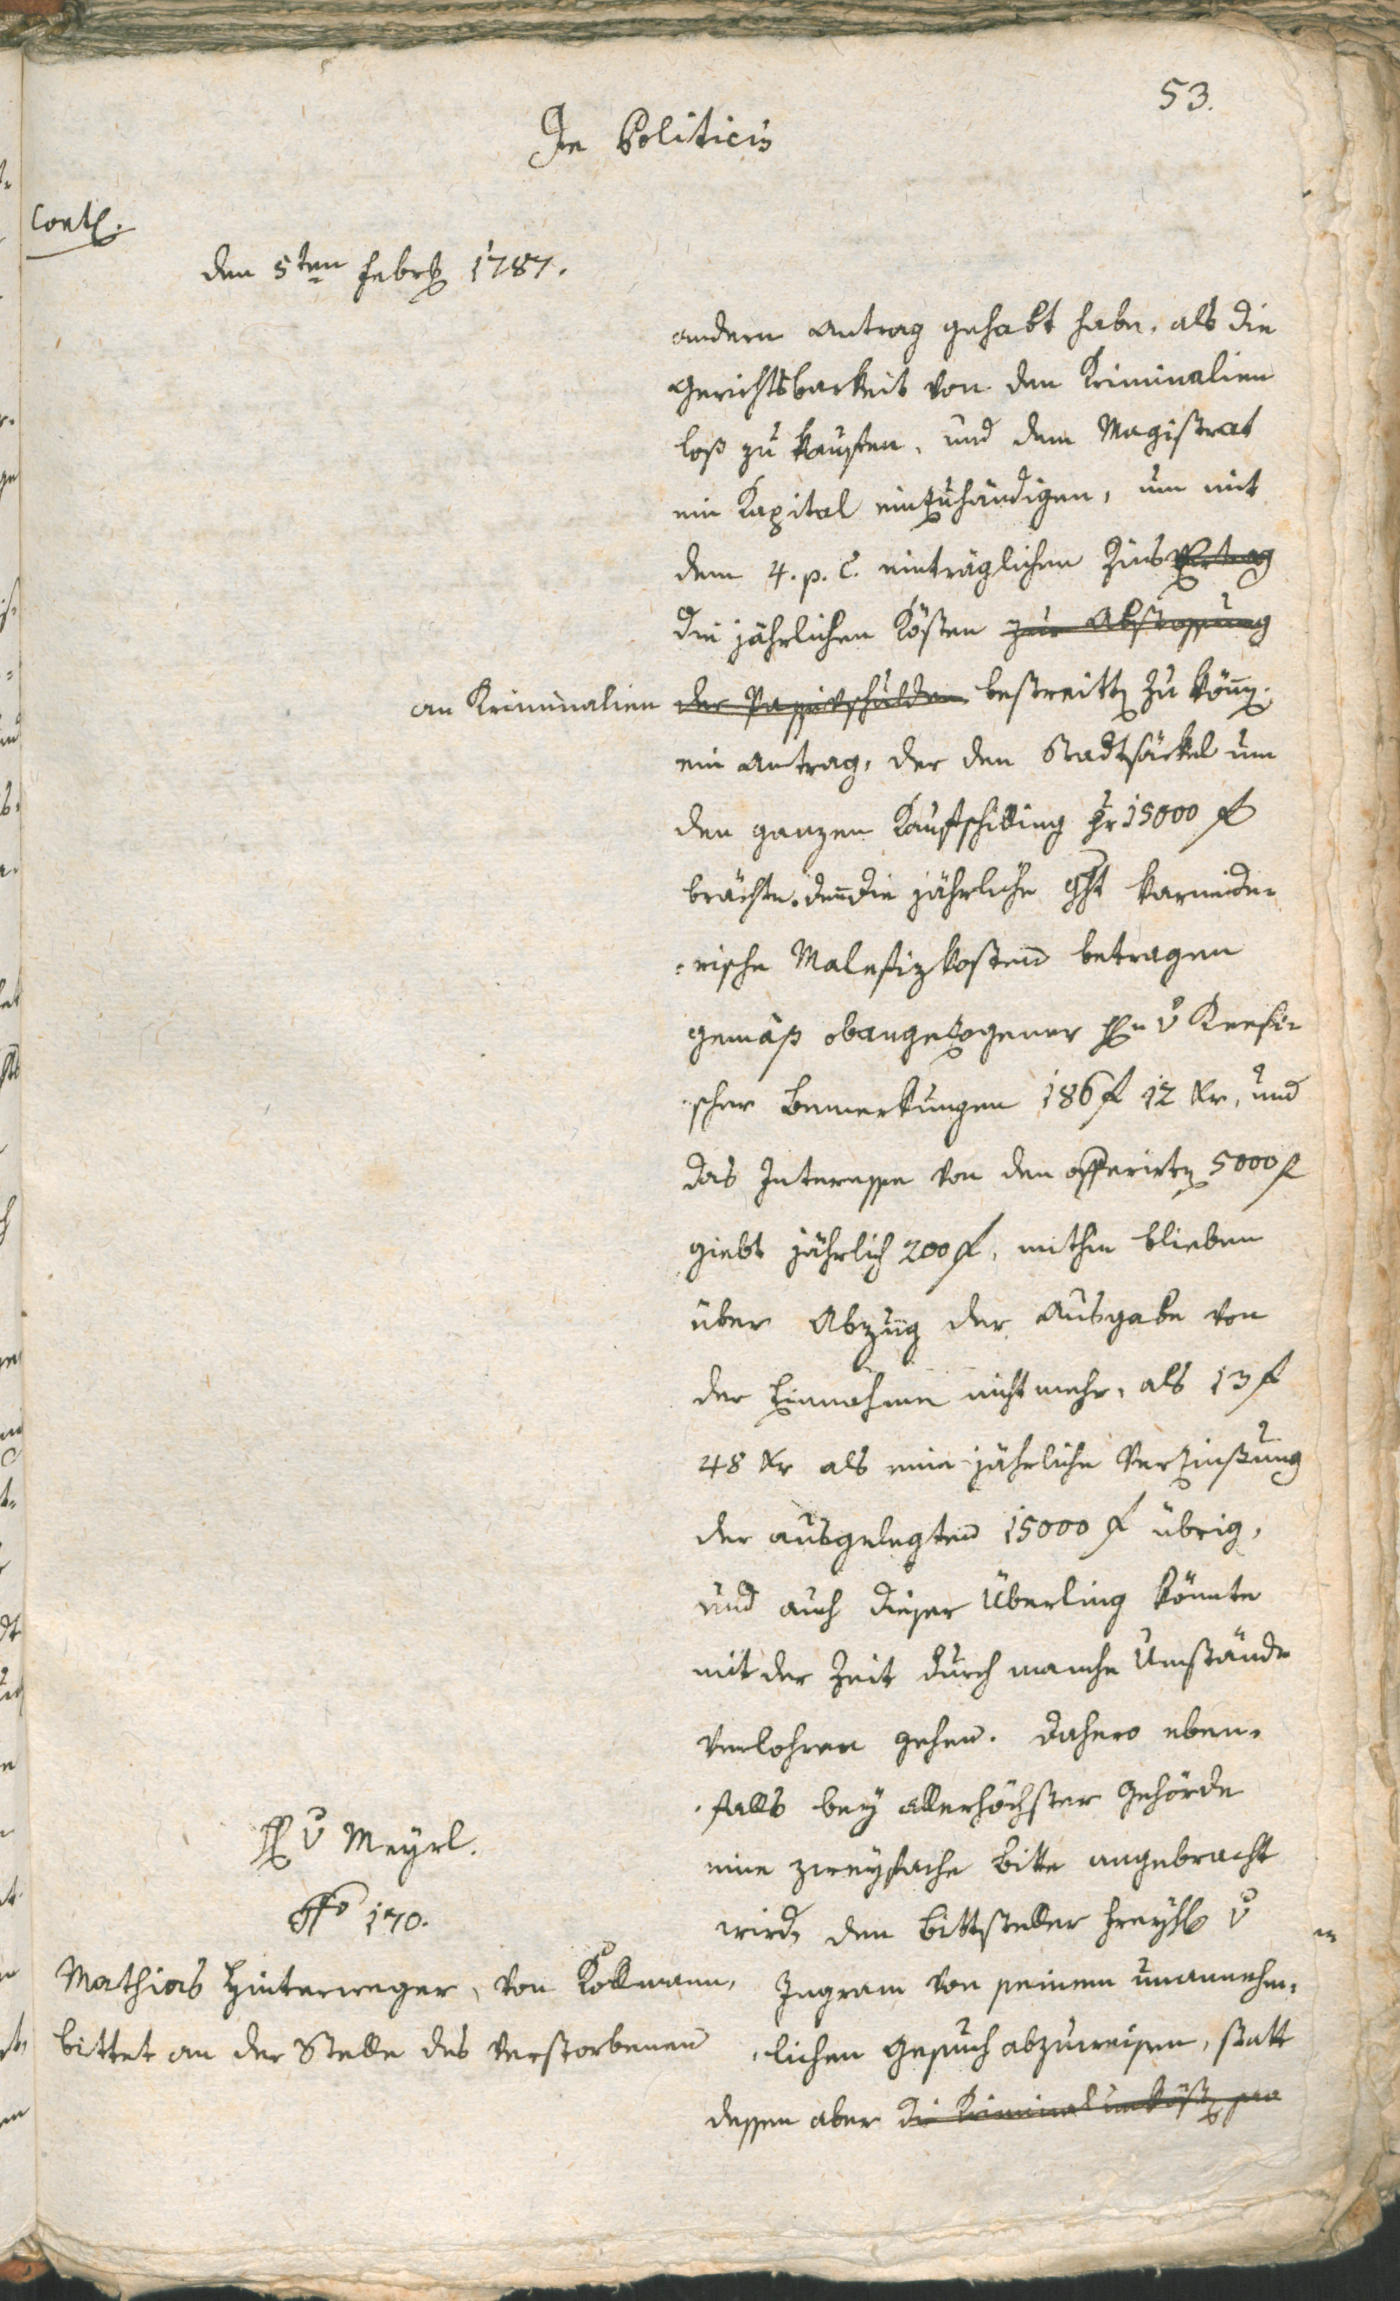 53.
In Politicis
Cont.
den 5ten Febr 1787.
andern Antrag gehabt habe, als die
Gerichtsbarkeit von den Kriminalien
loß zu kaufen, und dem Magistrat
ein Kapital einzuhändigen, um mit
dem 4. p. C. einträglichen Zins Ertrag
die jährlichen Kösten zur Abstossung
an Kriminalien der Passivschulden bestreitten zu können.
ein Antrag, der den Stadtsäckel um
den ganzen Kaufschilling pr 15000 f
brächte. denn die jährliche karneide-
-rische Malefizkosten betragen
gemäß obangezogener Hn v
-scher Bemerkungen 186 f 12 kr, und
das Interesse von den offerirten 5000 f
giebt jährlich 200 f, mithin blieben
über Abzug der Ausgabe von
der Einnahme nicht mehr, als 13 f
48 kr als eine jährliche Verzinßung
der ausgelegten 15000 f übrig,
und auch dieser Überling könnte
mit der Zeit durch manche Umstände
verlohren gehen. Dahero eben-
-falls bey allerhöchster Gehörde
eine zweyfache Bitte angebracht
wird, den Bittsteller Freyh v
Ingram von seinem unannehm-
-lichen Gesuch abzuweisen, statt
dessen aber die Kriminalunkösten
H v Meyrl.
No 170.
Mathias Hinterweger, von Kollmann,
bittet an der Stelle des verstorbenen